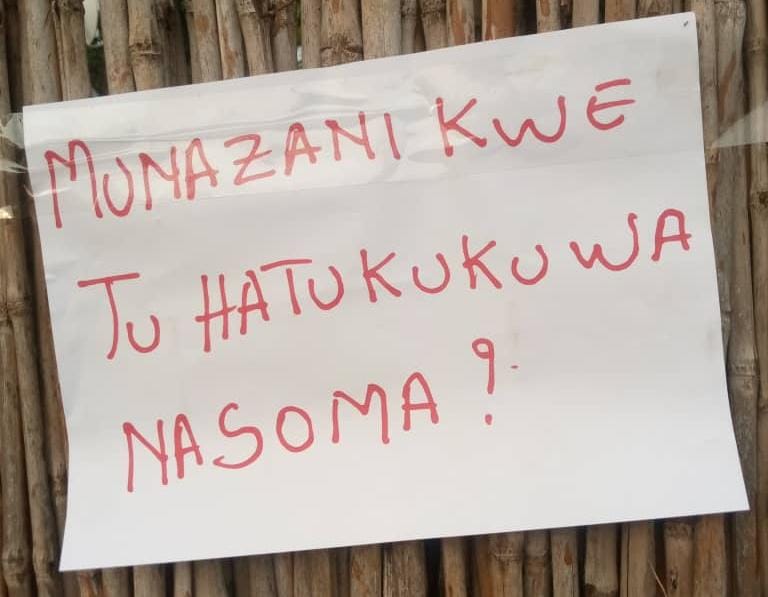 MUNAZANI KWE
TU HATUKUKUWA
NASOMA ?